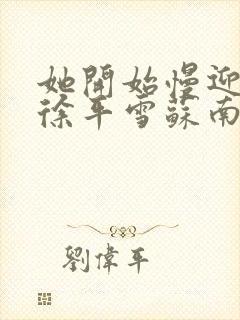 她開始慢迎
徐平雪蘇南
劉偉平